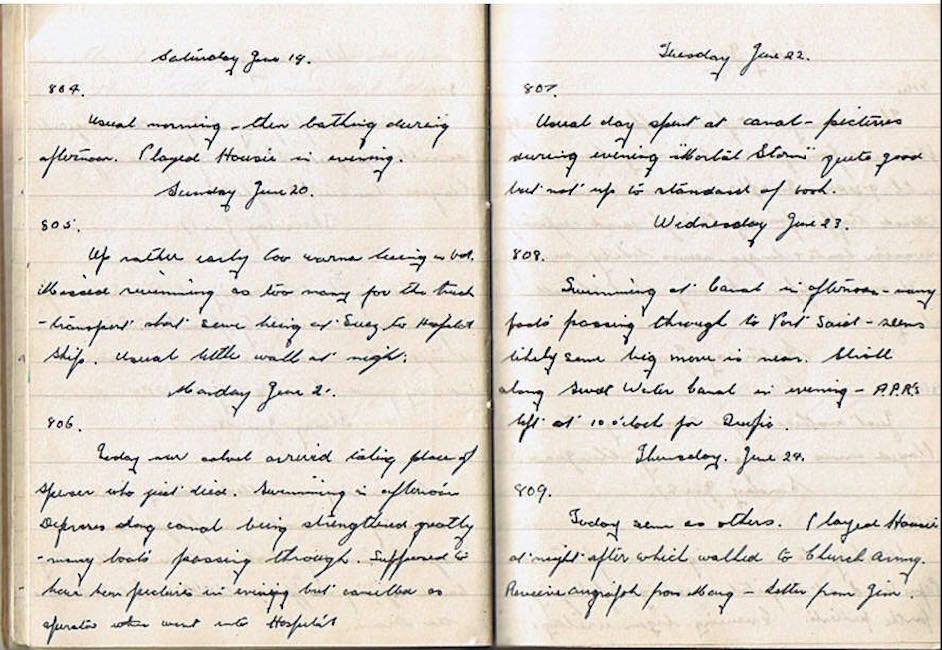 Saturday June 19.
804.
Usual morning - then bathing during
afternoon. Played Housie in evening.
Sunday June 20.
805.
Up rather early too warm being in bed.
Missed swimming as too many for the truck
- transport short some being at Suez to Hospital
Ship. Usual little walk at night.
Monday June 21.
806.
Today new arrived taking place of
who just died. Swimming in afternoon
Defences along canal being strengthened greatly
- many boats passing through. Supposed to
have been pictures in evening but cancelled as
operator went into Hospital
Tuesday June 22.
807.
Usual day spent at canal - pictures
during evening "Mortal Storm" quite good
but not up to standard of book.
Wednesday June 23.
808.
Swimming at Canal in afternoon - many
boats passing through to Port Said - seems
likely some big move is near. Stroll
along Sweet Water Canal in evening - A.P.R's
left at 10 o'clock for
Thursday. June 24.
809.
Today same as others. Played Housie
at night after which walked to Church Army.
Receive airgraph from - Letter from Jim.